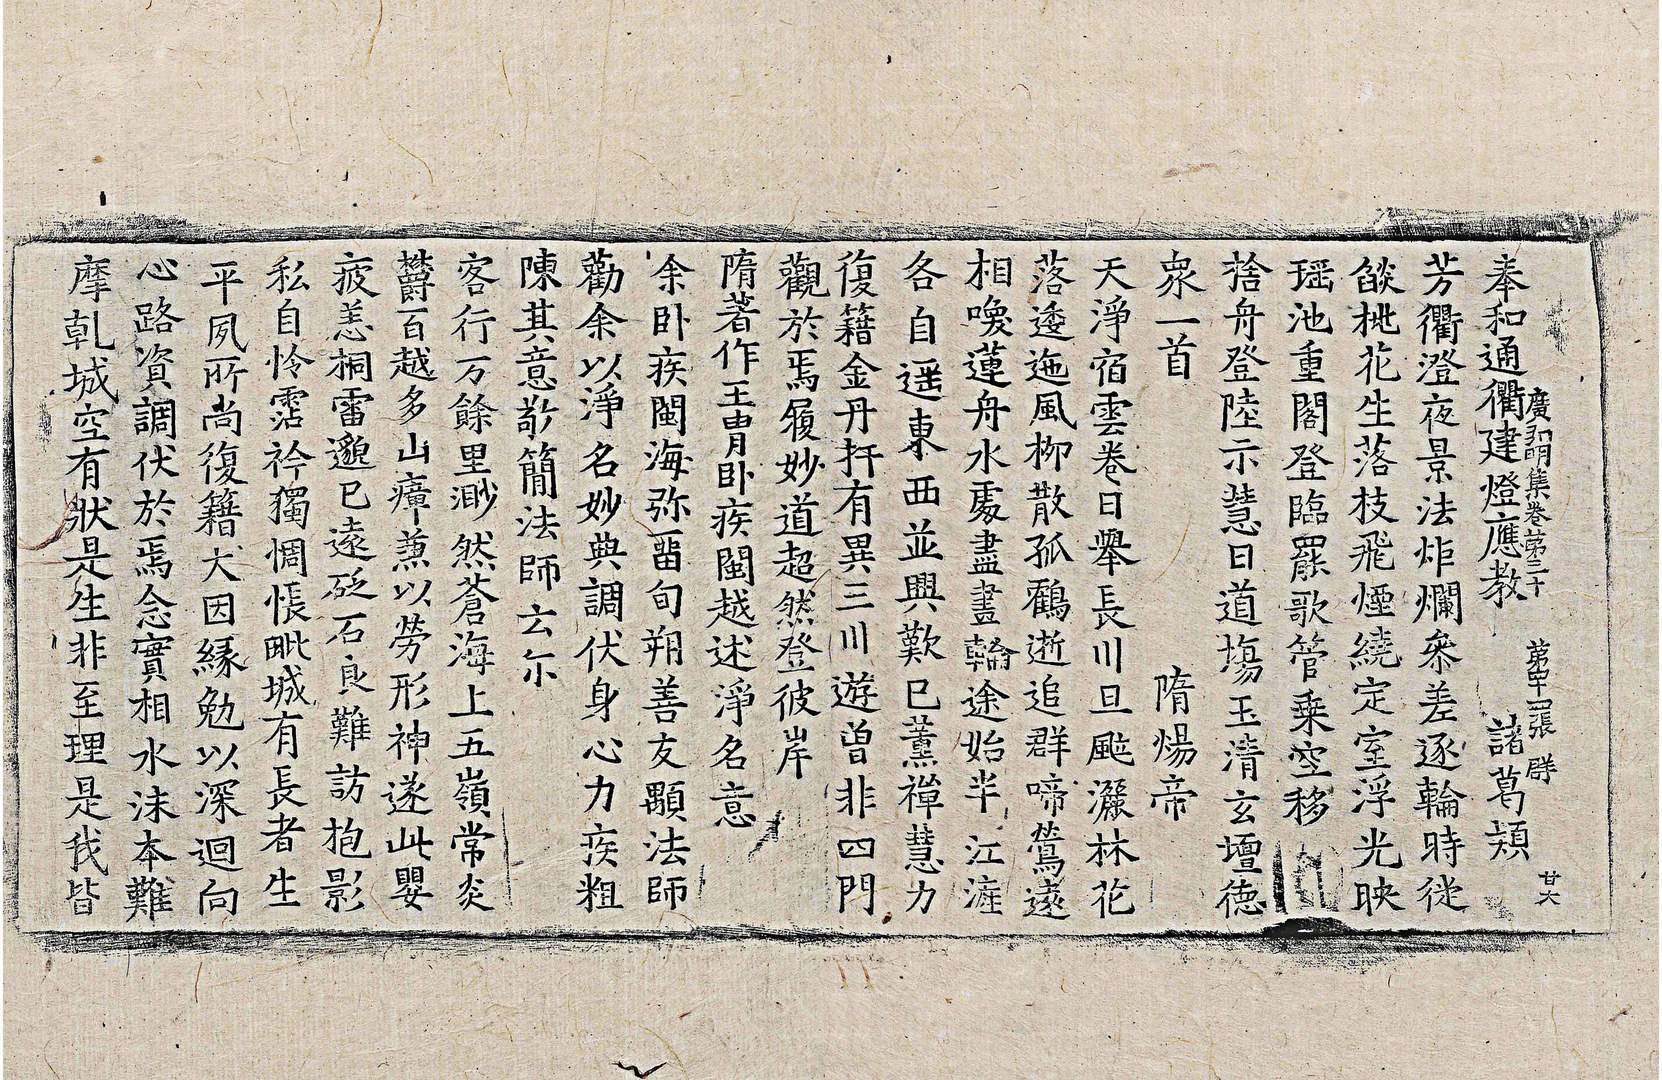 廣弘明集卷第三十　第四十四張　群
奉和通衢建燈應教　諸葛潁
芳衢澄夜景法炬爛叅差逐輪時徙
燄桃花生落枝飛煙繞定室浮光映
瑶池重閣登臨罷歌管乗空移
捨舟登陸示慧日道塲玉清玄壇德
衆一首　隋煬帝
天淨宿雲卷日舉長川旦颭灑林花
落逶迤風柳散孤鶴逝追群啼鶯遠
相喚蓮舟水處盡畫輪途始半江漄
各自遥東西並興歎巳薰禪慧力
復籍金丹扞有異三川遊曾非四門
觀於焉履妙道超然登彼岸
隋著作王胄卧疾閩越述淨名意
余卧疾閩海弥留旬朔善友顒法師
勸余以淨名妙典調伏身心力疾粗
陳其意敬簡法師云尒
客行万餘里渺然蒼海上五嶺常炎
欝百越多山瘴蒹以勞形神遂此嬰
疲恙桐雷邈已遠砭石良難訪抱影
私自怜霑衿獨惆悵毗城有長者生
平夙所尚復籍大因縁勉以深迴向
心路資調伏於焉念實相水沫本難
摩乹城空有狀是生非至理是我皆
廿六